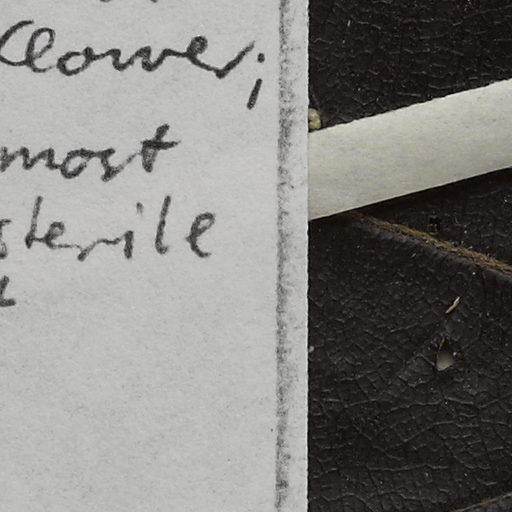 flower;
most
sterile